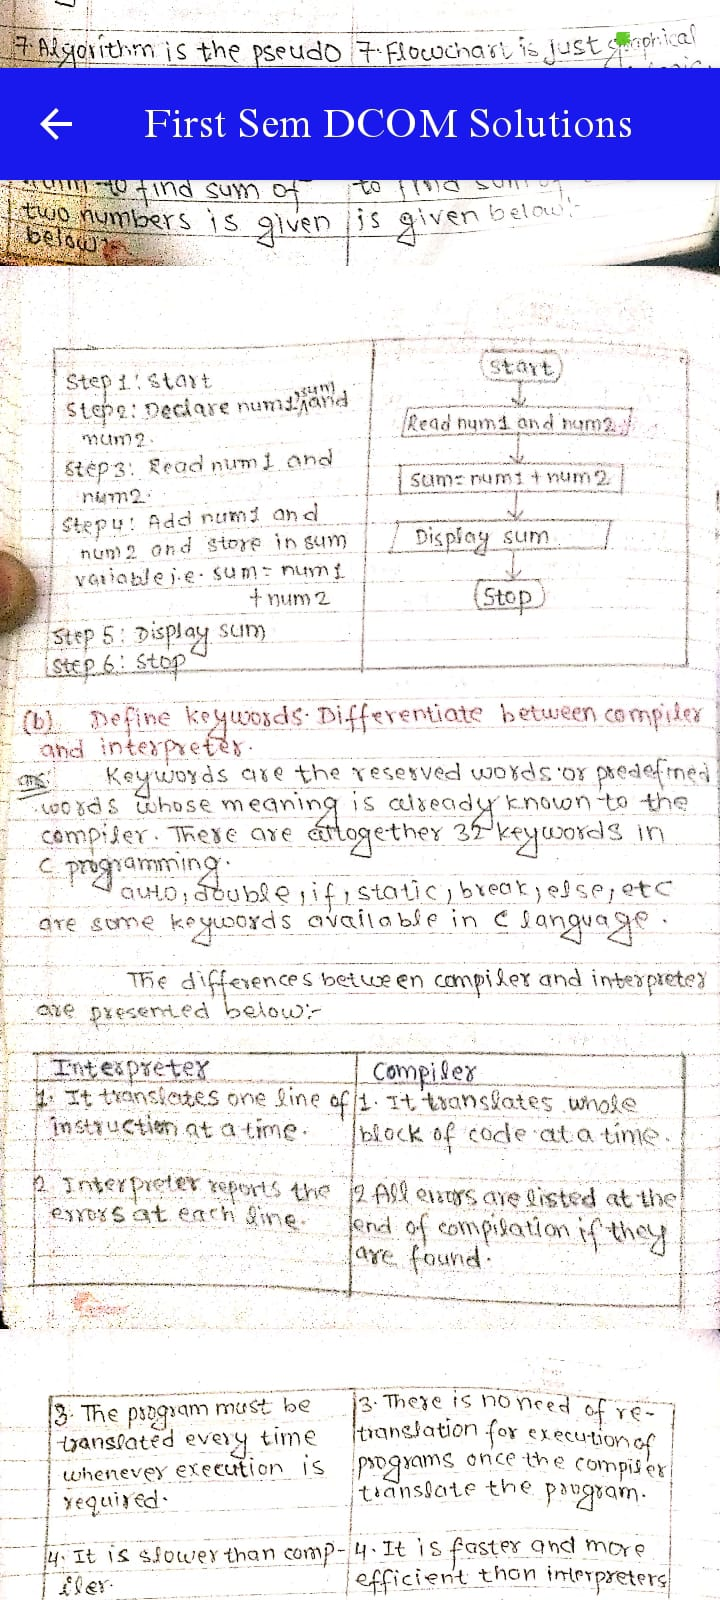 7. Algorithm is the pseudo
7. Flowchart is just graphical
First Sem DCOM Solutions
to find sum of
to find sum of
two numbers is given
is given below:-
below:-
Step 1: Start
Step 2: Declare num1, sum and
num2.
Step 3: Read num1 and
num2.
Step 4: Add num1 and
num2 and store in sum
variable i.e. sum = num1
+ num2
Step 5: Display sum
Step 6: Stop
Start
Read num1 and num2
sum = num1 + num2
Display sum
Stop
(b) Define keywords. Differentiate between compiler
and interpreter.
Ans: Keywords are the reserved words or predefined
words whose meaning is already known to the
compiler. There are altogether 32 keywords in
C programming.
auto, double, if, static, break, else, etc
are some keywords available in C language.
The differences between compiler and interpreter
are presented below:-
Interpreter
1. It translates one line of
instruction at a time.
2. Interpreter reports the
errors at each line.
Compiler
1. It translates whole
block of code at a time.
2. All errors are listed at the
end of compilation if they
are found.
3. The program must be
translated every time
whenever execution is
required.
4. It is slower than comp-
iler.
3. There is no need of re-
translation for execution of
programs once the compiler
translate the program.
4. It is faster and more
efficient than interpreters